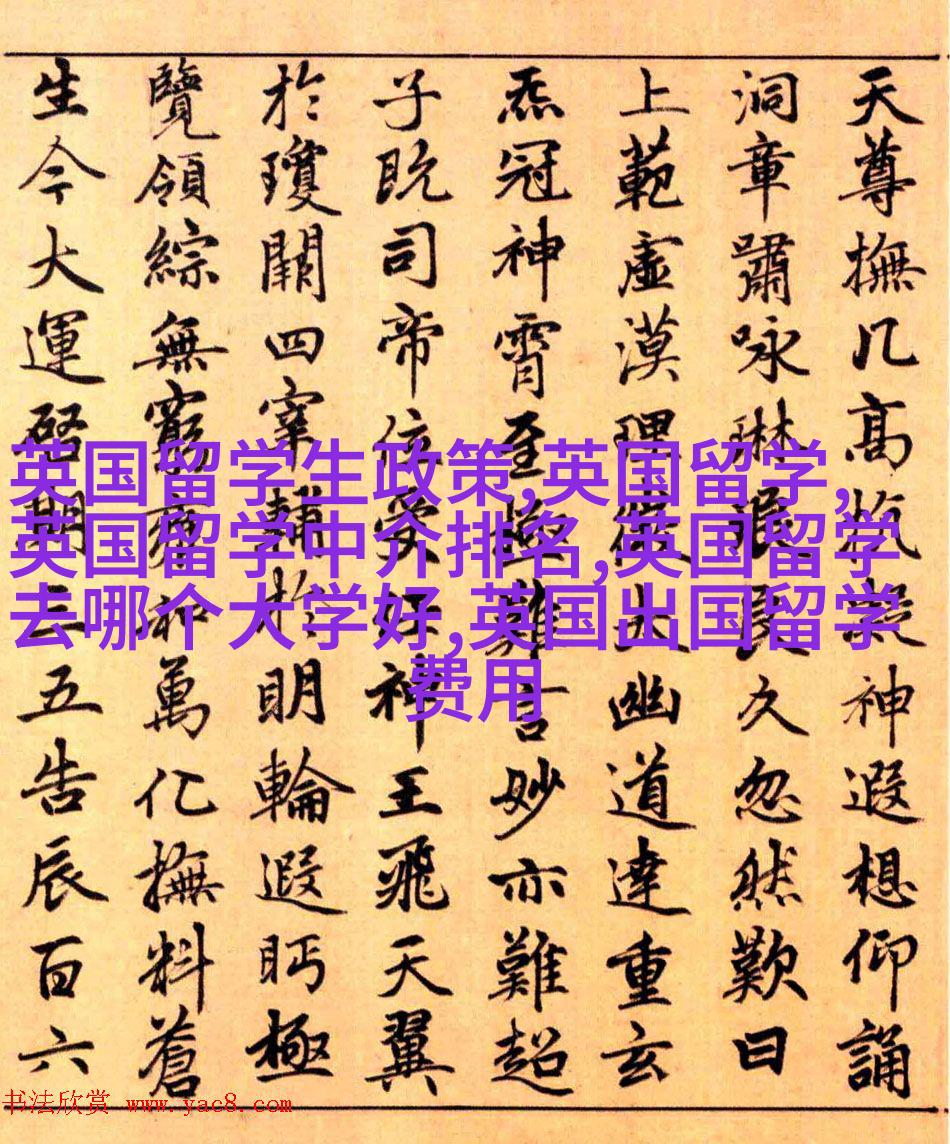 天尊撫几高抗凝神遐想仰誦
洞章嘯咏琳琅良久忽然歎曰
上範虛漠理微大幽道達重玄
炁冠神霄至極難言妙亦難超
子既司帝位受任神王飛天翼
於瓊闕四宰輔於明輪遐眄極
覽領綜無窮慶祚萬化撫料蒼
生今大運啓期三五告辰百六
英国留学生政策,英国留学,
英国留学中介排名,英国留学
去哪个大学好,英国出国留学
费用
书法欣赏 www.yac8.com